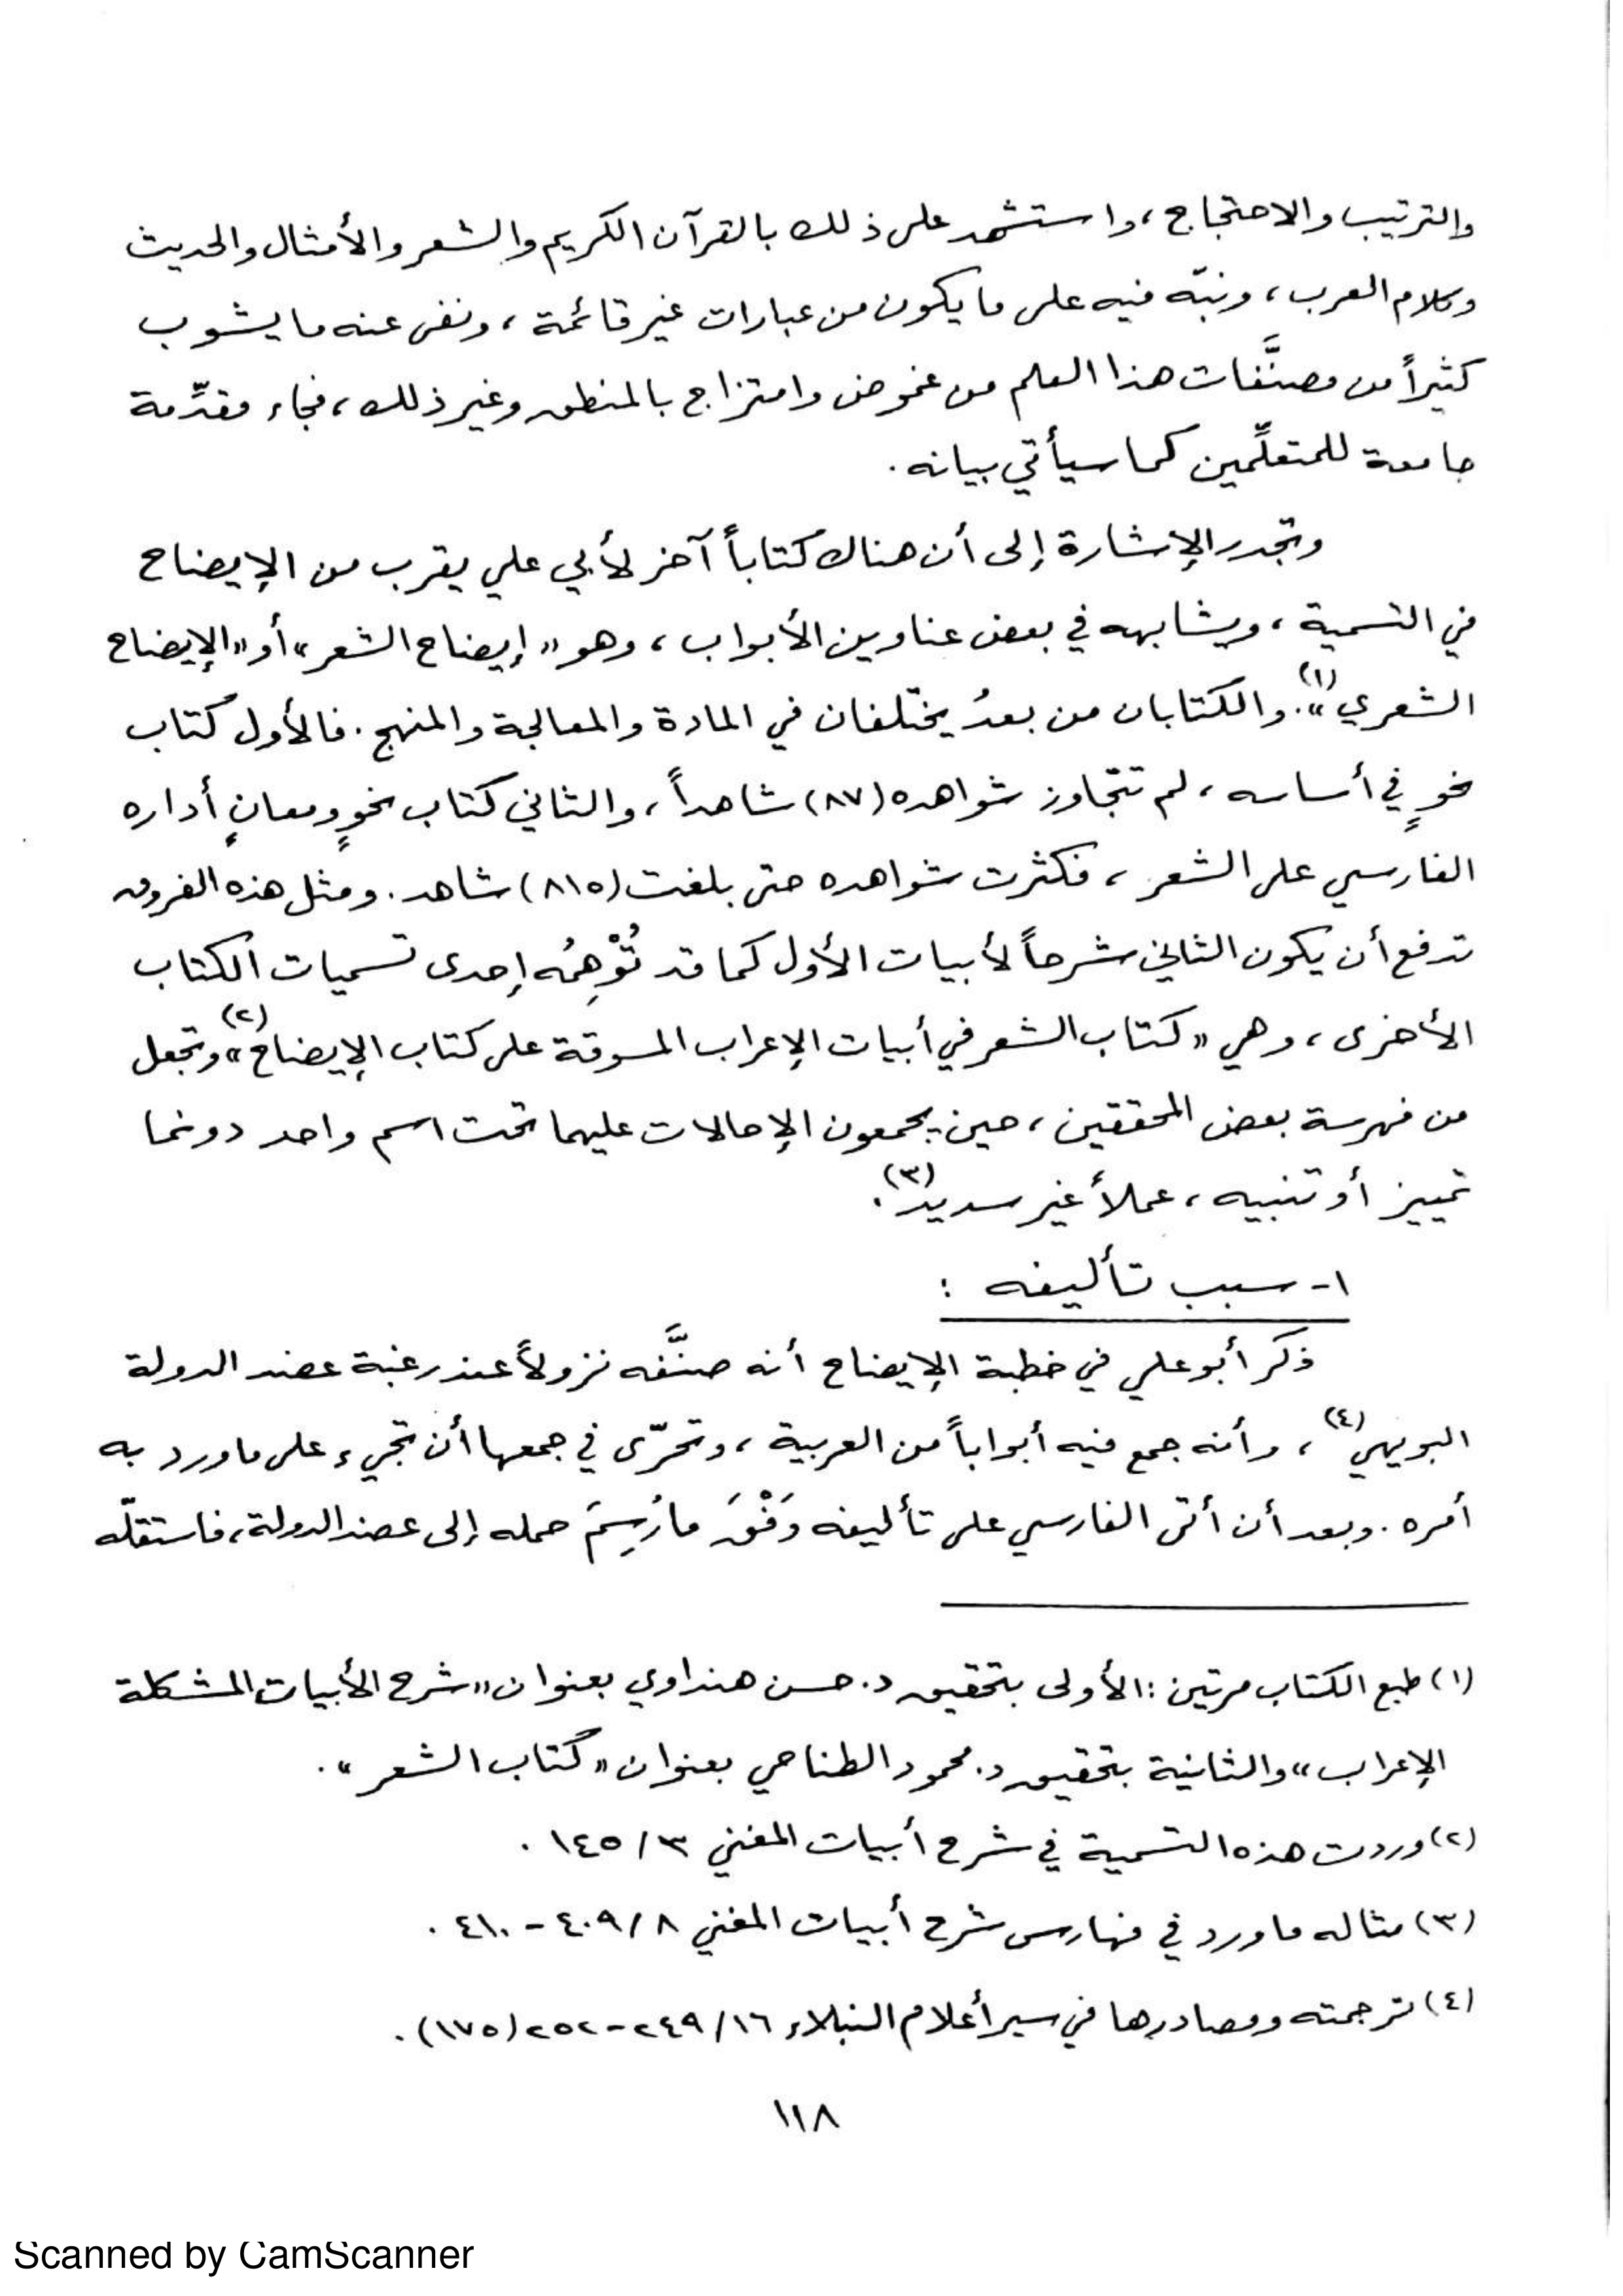 والترتيب والاحتجاج ، واستشهد على ذلك بالقرآن الكريم والشعر والأمثال والحديث
وكلام العرب ، ونبّه فيه على ما يكون من عبارات غير قائمة ، ونفى عنه ما يشوب
كثيراً من مصنَّفات هذا العلم من غموض وامتزاج بالمنطق وغير ذلك ، فجاء مقدِّمة
جامعة للمتعلِّمين كما سيأتي بيانه .
وتجدر الإشارة إلى أن هناك كتاباً آخر لأبي علي يقرب من الإيضاح
في التسمية ، ويشابهه في بعض عناوين الأبواب ، وهو « إيضاح الشعر » أو « الإيضاح
الشعري »(١). والكتابان من بعدُ يختلفان في المادة والمعالجة والمنهج . فالأول كتاب
نحوٍ في أساسه ، لم تتجاوز شواهده (٨٧) شاهداً ، والثاني كتاب نحوٍ ومعانٍ أداره
الفارسي على الشعر ، فكثرت شواهده حتى بلغت (٨١٥) شاهد . ومثل هذه الفروق
تدفع أن يكون الثاني شرحاً لأبيات الأول كما قد تُوْهِمُه إحدى تسميات الكتاب
الأخرى ، وهي « كتاب الشعر في أبيات الإعراب المسوقة على كتاب الإيضاح »(٢) وتجعل
من فهرسة بعض المحققين ، حين يجمعون الإحالات عليهما تحت اسم واحد دونما
تمييز أو تنبيه ، عملاً غير سديد(٣).
١- سبب تأليفه :
ذكر أبو علي في خطبة الإيضاح أنه صنَّفه نزولاً عند رغبة عضد الدولة
البويهي(٤) ، وأنه جمع فيه أبواباً من العربية ، وتحرّى في جمعها أن تجيء على ما ورد به
أمره . وبعد أن أتى الفارسي على تأليفه وَفْقَ ما رُسِمَ حمله إلى عضد الدولة ، فاستقلّه
(١) طبع الكتاب مرتين : الأولى بتحقيق د. حسن هنداوي بعنوان « شرح الأبيات المشكلة
الإعراب » والثانية بتحقيق د. محمود الطناحي بعنوان « كتاب الشعر » .
(٢) وردت هذه التسمية في شرح أبيات المغني ٣/١٤٥ .
(٣) مثاله ما ورد في فهارس شرح أبيات المغني ٨/٤٠٩ - ٤١٠ .
(٤) ترجمته ومصادرها في سير أعلام النبلاء ١٦/٢٤٩-٢٥٢ (١٧٥) .
١١٨
Scanned by CamScanner